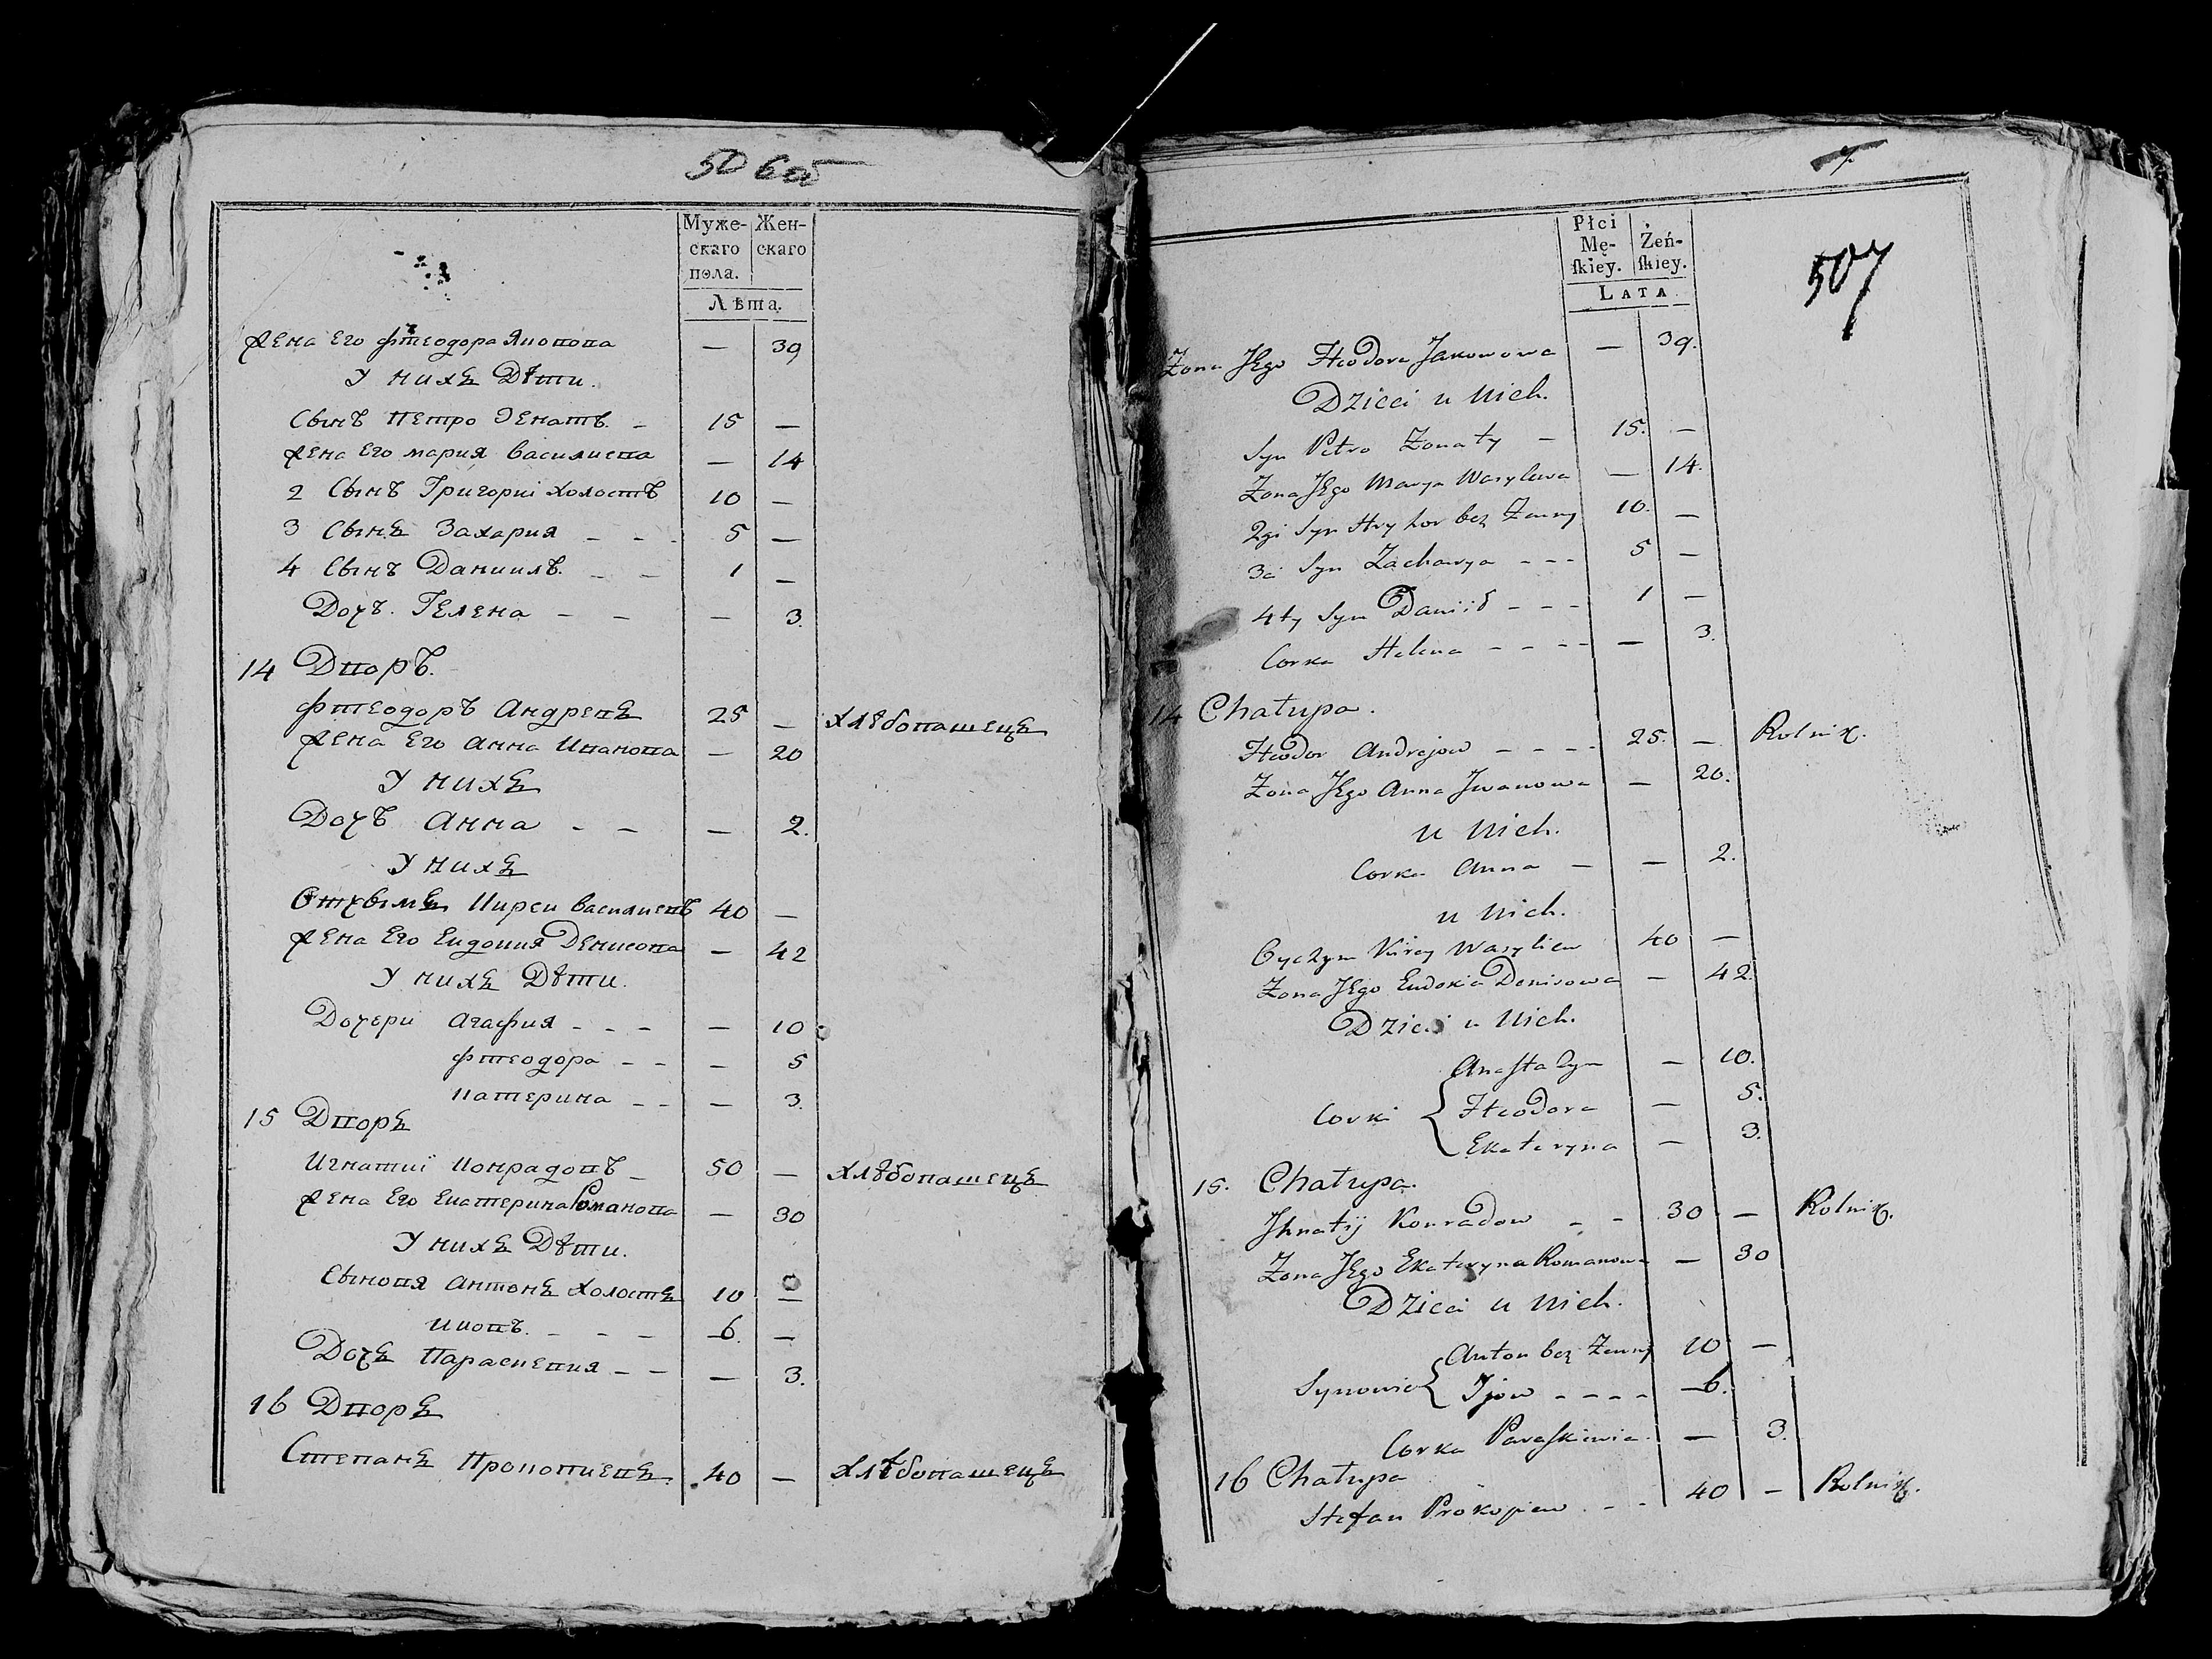 50 6 об
Муже-
скаго
пола.
Жен-
скаго
Лѣта.
Жена Его Фтеодора Якопопа — 39
У нихъ Дѣти.
Сынъ Петро Женатъ. — 15 —
Жена Его мария василиепа — 14
2 Сынъ Григориі холостъ 10 —
3 Сынъ Захария — — 5 —
4 Сынъ Даниилъ. — — 1 —
Дочъ. Гелена — — — 3.
14 Дпоръ.
Фтеодоръ Андрепъ 25 — хлѣбопашецъ
Жена Его Анна Ипанопа — 20
У нихъ
Дочъ Анна — — — 2.
У нихъ
Отчымъ Киреи василиепъ 40 —
Жена Его Евдокия Денисопа — 42
У нихъ Дѣти.
Дочери Агафия — — — — 10
Фтеодора — — — 5
Катерина — — — 3.
15 Дпоръ
Игнатиі Конрадопъ — 50 — хлѣбопашецъ
Жена Его Екатерина Романопа — 30
У нихъ Дѣти.
Сынопя Антонъ холостъ 10 —
Иопъ. — — — 6. —
Дочъ Параскепия — — — 3.
16 Дпоръ
Степанъ Прокопиепъ 40 — хлѣбопашецъ
7.
507
Płci
Mę-
ſkiey.
Żeń-
ſkiey.
LATA
Żona JEgo Hteodora Jakowowa — 39.
Dzieci u Nich.
Syn Petro Żonaty — 15. —
Żona JEgo Marya Wasylewa — 14.
2gi Syn Hryhor bez Żenny 10. —
3ci Syn Zacharya - - - 5 —
4ty Syn Daniił - - - 1 —
Corka Helena - - - - — 3.
14 Chałupa.
Hteodor Andrejow - - - - 25. — Rolnik.
Żona JEgo Anna Jwanowa — 20.
u Nich.
Corka Anna — — 2.
u Nich.
Oyczym Kirey Wasyliew 40 —
Żona JEgo Eudokia Denisowa — 42.
Dzieci u Nich.
Corki { Anastazya — 10.
Hteodora — 5.
Ekateryna — 3.
15. Chałupa.
Jhnatij Konradow - - 30 — Rolnik.
Żona JEgo Ekateryna Romanowa — 30
Dzieci u Nich.
Synowie { Anton bez Żenny 10 —
Jjow - - - - 6.
Corka Paraskiewia. — 3.
16 Chałupa
Stefan Prokopiew - - 40 — Rolnik.